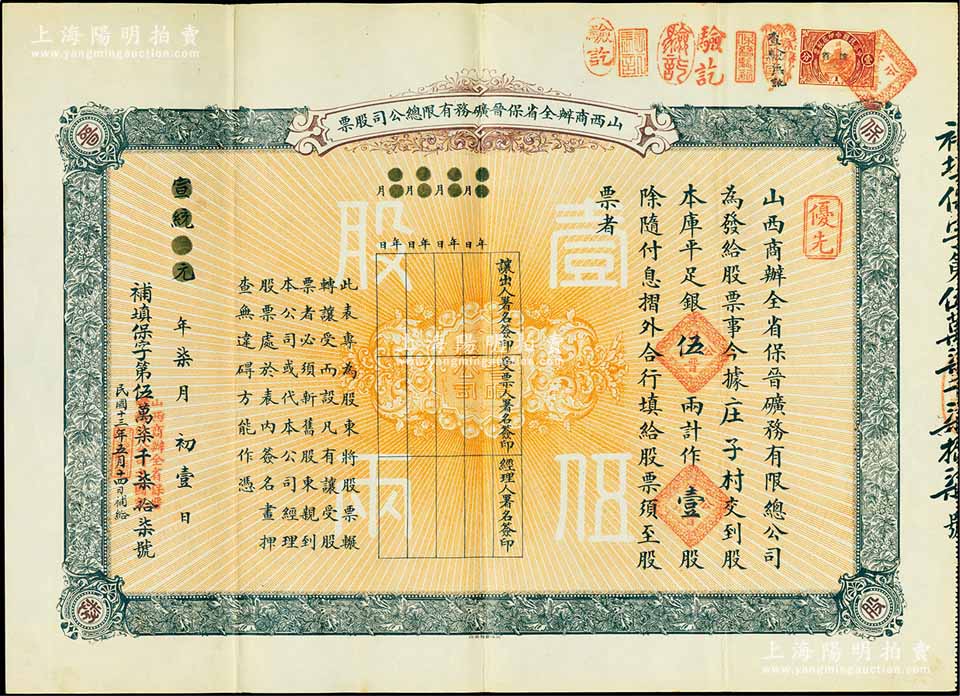 上海陽明拍賣
www.yangmingauction.com
驗訖
驗訖
驗訖
山西商辦全省保晉礦務有限總公司股票
優先
山西商辦全省保晉礦務有限總公司
為發給股票事今據庄子村交到股
本庫平足銀伍兩計作壹股
除隨付息摺外合行填給股票須至股
票者
壹股
伍兩
年月日
年月日
年月日
年月日
讓出人署名簽印
受票人署名簽印
經理人署名簽印
此表專為股東將股票輾
轉讓受而設凡有讓受股
票者必須斬舊股東親到
本公司或代本公司經理
股票處於表內簽名畫押
查無違碍方能作憑
宣統元年柒月初壹日
補填保字第伍萬柒千柒拾柒號
民國十三年五月十四日補給
上海陽明拍賣
www.yangmingauction.com
上海陽明拍賣
www.yangmingauction.com